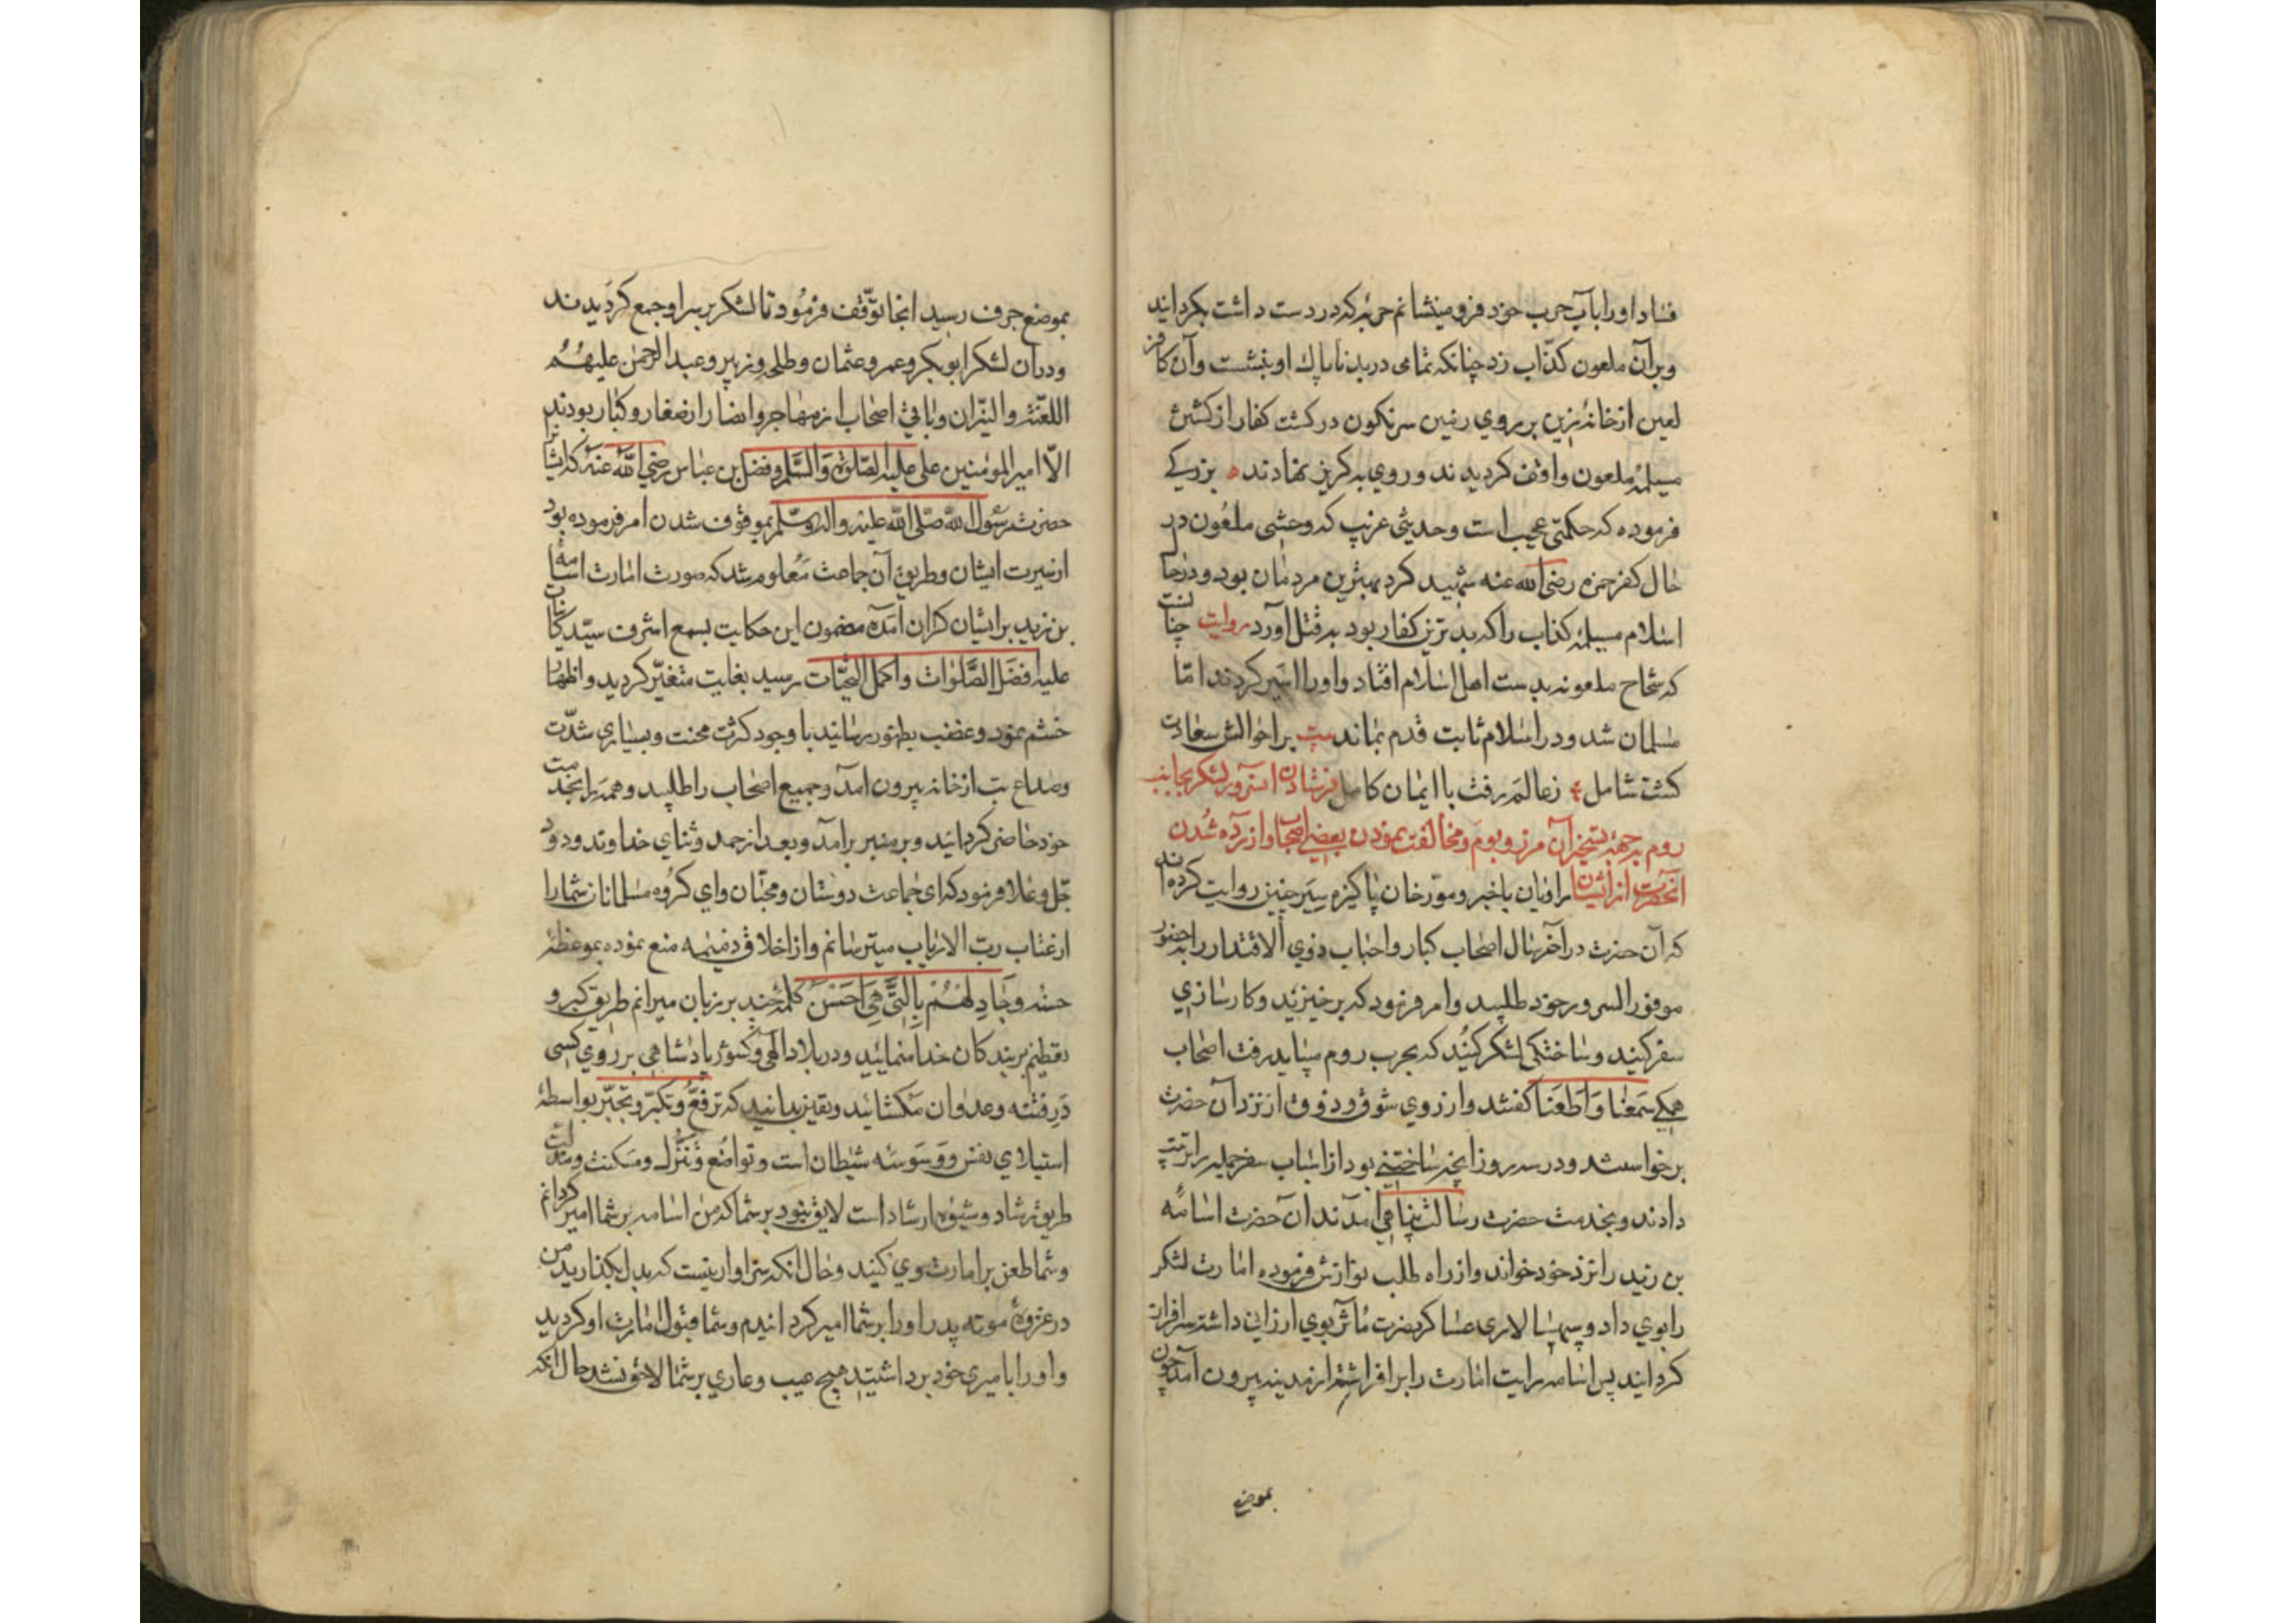 فساد او را بآب حرب خود فرو مینشانم حربه که در دست داشت بکردانید
و بر آن ملعون کذّاب زد چنانکه تمامی در بدن ناپاك او بنشست و آن کافر
لعین از خانۀ زین بر روی زمین سرنکون در کشت کفار از کشتن
مسیلمۀ ملعون واقف کردیدند و روی به کریز نهادند بزرکی
فرموده که حکمتی عجیب است و حدیثی غریب که وحشی ملعون در
حال کفر حمزه رضی الله عنه شهید کرد بهترین مردمان بود و در حا
اسلام مسیلمۀ کذاب را که بدترین کفار بود به قتل آورد روایت چنانست
که سَجاح ملعونه بدست اهل اسلام افتاد و او را اسیر کردند امّا
مسلمان شد و در اسلام ثابت قدم بماند بیت بر احوالش سعادت
کشت شامل زعالم رفت با ایمان کامل فرستادن آن سرور لشکر بجانب
روم بر جهة تسخیر آن مرز و بوم و مخالفت نمودن بعضی اصحاب و آزرده شدن
آنحضرت از ایشان راویان باخبر و مورخان پاکیزه سِیَر چنین روایت کرده اند
که آن حضرت در آخر سال اصحاب کبار و احباب ذوی الاقتدار را به حضور
موفور السرور خود طلبید و امر فرمود که برخیزید و کارسازی
سفر کنید و ساختکی لشکر کنید که بحرب روم میباید رفت اصحاب
همکی سَمِعْنا وَاَطَعْنا کفتند و از روی شوق و ذوق از نزد آن حضرت
برخواستند و در سه روز آنچه ساختنی بود از اسباب سفر جمله را ترتیب
دادند و بخدمت حضرت رسالت پناهی آمدند آن حضرت اسامه
بن زید را نزد خود خواند و از راه طلب نوازش فرموده امارت لشکر
را بوی داد و سپهسالاری عساکر نصرت مآثر بوی ارزانی داشته سرافراز
کردانید پس اسامه رایت امارت را بر افراشته از مدینه بیرون آمد چون
بموضع
بموضع جرف رسید آنجا توقّف فرمود تا لشکر بر سر او جمع کردیدند
و در آن لشکر ابوبکر و عمر و عثمان و طلحه و زبیر و عبدالرحمن علیهم
اللعنة والنیران و باقی اصحاب از مهاجر و انصار از صغار و کبار بودند
الّا امیر المؤمنین علی علیه الصّلوة والسّلام و فضل بن عباس رضی الله عنه که ایشا
حضرت رسول الله صلّی الله علیه و اله و سلّم بموقوف شدن امر فرموده بود
از سیرت ایشان و طریق آن جماعت معلوم شد که صورت امارت اسامه
بن زید بر ایشان کران آمده مضمون این حکایت بسمع اشرف سیّد کاینات
علیه افضل الصّلوات و اکمل التحیّات رسید بغایت متغیّر کردید و اظهار
خشم نمود و غضب بظهور رسانید با وجود کثرت محنت و بسیاری شدّت
و صداع تب از خانه بیرون آمد و جمیع اصحاب را طلبید و همه را بخدمت
خود حاضر کردانید و بر منبر برآمد و بعد از حمد و ثنای خداوند ودود
جلّ و علا فرمود که ای جماعت دوستان و محبّان و ای کروه مسلمانان شما را
از عتاب ربّ الارباب میترسانم و از اخلاق ذمیمه منع نموده بموعظۀ
حسنه وجَادِلهُمْ بِالَّتی هِیَ اَحسَنُ کلمۀ چند بر زبان میرانم طریق کبر و
تعظیم بر بند کان خدا منمایید و در بلاد الهی و کشور پادشاهی بر روی کسی
دَرِ فتنه و عدوان مکشائید و یقین بدانید که ترفّع و تکبّر و تجبّر بواسطۀ
استیلای نفس و وَسوَسه شیطان است و تواضُع و تَنَزُّل و مسکنت و مذلّت
طریق رشاد و شیوه ارشاد است لایق نبود بر شما که من اسامه بر شما امیر کردانم
و شما طعن بر امارت وی کنید و حال آنکه سزاوار نیست که بدل بکذارید من
در غزوۀ موته پدر او را بر شما امیر کردانیدم و شما قبول امارت او کردید
و او را بامیری خود برداشتید هیچ عیب و عاری بر شما لاحق نشد حال آنکه